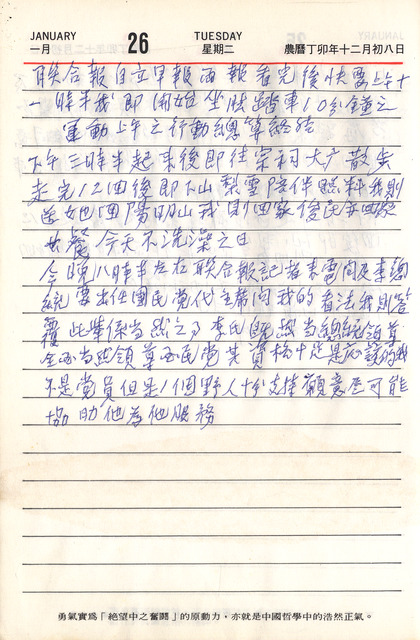 JANUARY
一月
26
TUESDAY
星期二
農曆丁卯年十二月初八日
聯合報自立早報兩報看完後快要上午十
一時半我即開始坐腳踏車10分鐘之
運動上午之行動總算終結
下午三時半起來後即往宗祠大廣散步
走完12回後即下山 陪 我則
送她回陽明山我則回家後民年回家
女餐 今天不洗澡之日
今晚八時半左右聯合報記者來電問及李總
統要出任國民黨代主席問我的看法我則答
覆此举係當然之了李氏既然當總統領導
全國當然領導國民黨其資格十足是應該的我
不是黨員但是1個野人十分支持願意尽可能
協助他為他服務
勇氣實爲「絕望中之奮鬪」的原動力，亦就是中國哲學中的浩然正氣。